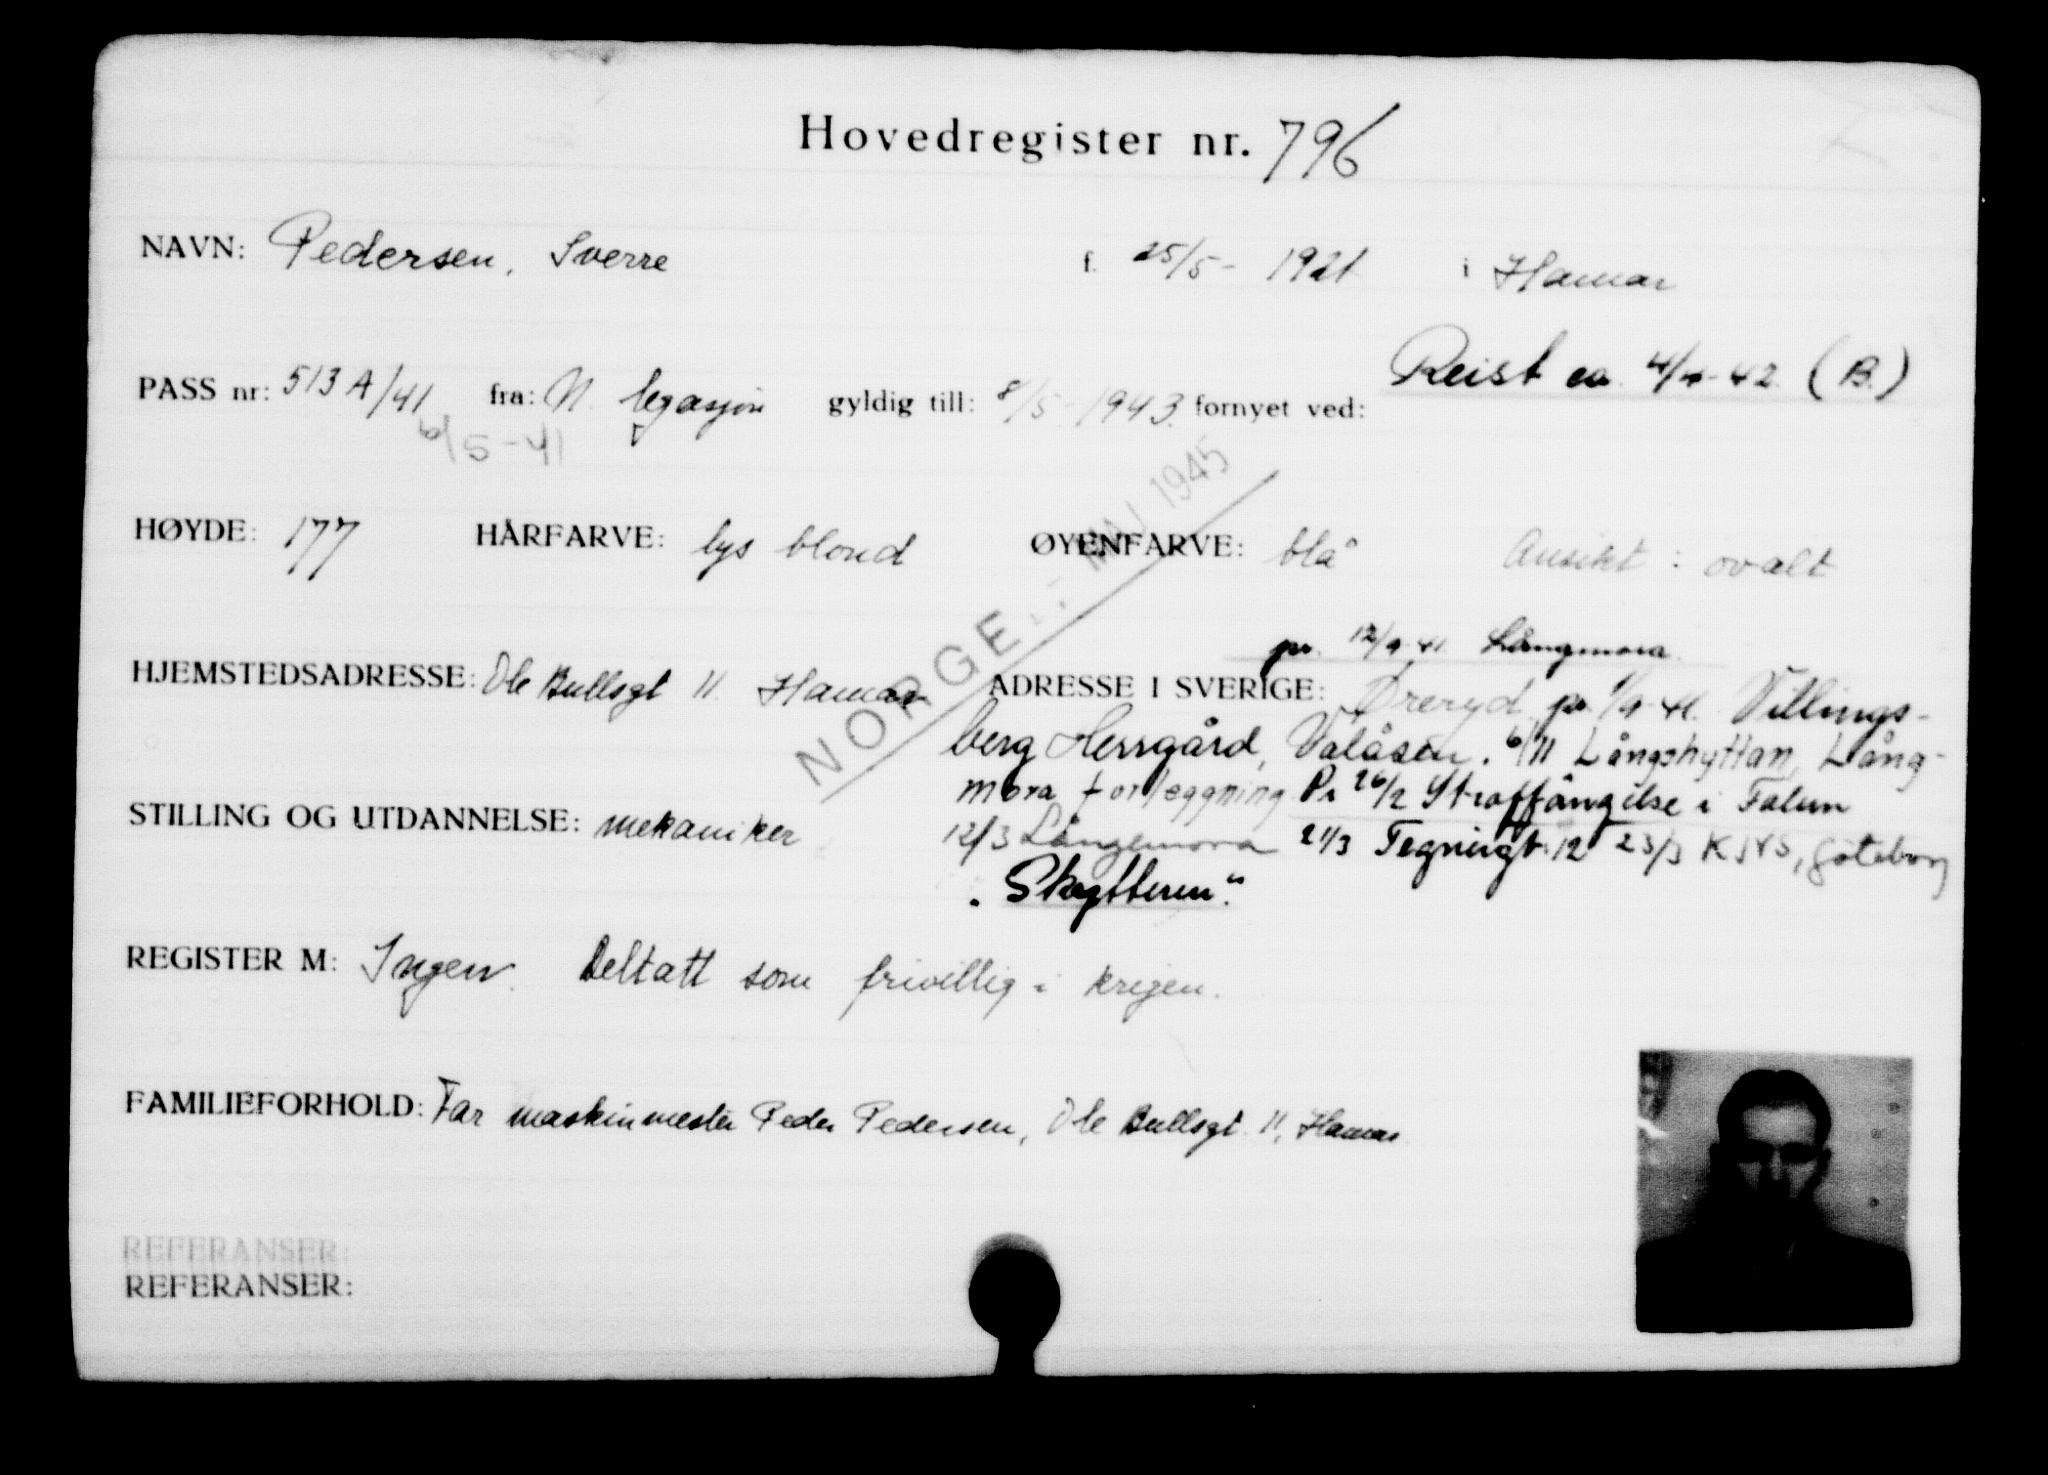 Hovedregister nr. 796
NAVN: Pedersen, Sverre f. 25/5 - 1921 i Hamar
Reist ca. 4/4-42 (B.)
PASS nr: 513 A/41 fra: N. legasjon gyldig till: 8/5 1943. fornyet ved:
6/5-41
NORGE MAJ 1945
HØYDE: 177 HÅRFARVE: lys blond ØYENFARVE: blå Ansikt: ovalt
pr. 12/9-41. Långmora.
HJEMSTEDSADRESSE: Ole Bullsgt 11. Hamar ADRESSE I SVERIGE: Øreryd pr. 1/9-41. Villings-
berg Herrgård, Valåsen. 6/11 Långshyttan, Lång-
mora forleggning Pr 26/2 Straffångilse i Falun
STILLING OG UTDANNELSE: mekaniker 12/3 Långemora 21/3 Tegnérgt. 12 23/3 KJVS, Göteborg
"Skytteren".
REGISTER M: Ingen. Deltatt som frivillig i krigen.
FAMILIEFORHOLD: Far maskinmester Peder Pedersen, Ole Bullsgt. 11, Hamar
REFERANSER:
REFERANSER: